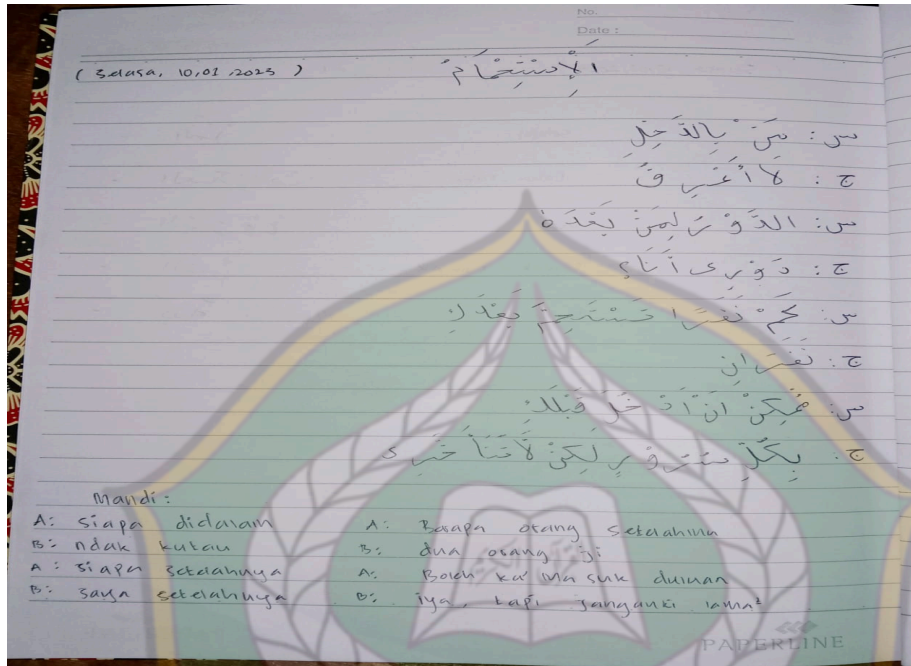 No.
Date :
(Selasa, 10,01,2023)
اَلْإِسْتِحْمَامُ
س: مَنْ بِالدَّاخِلِ
ج: لَا أَعْرِفُ
س: الدَّوْرُ لِمَنْ بَعْدَهُ
ج: دَوْرِى أَنَا؟
س: كَمْ نَفَرًا تَسْتَحِمُّ بَعْدَكِ
ج: نَفَرَانِ
س: مُمْكِنْ اَنْ أَدْخُلَ قَبْلَكِ
ج: بِكُلِّ سُرَوْرٍ لٰكِنْ لَاتَتَأَخَّرِى
Mandi :
A: Siapa didalam
B: ndak kutau
A: Siapa setelahnya
B: saya setelahnya
A: Berapa orang setelahmu
B: dua orang ji
A: Boleh ka' masuk duluan
B: iya, tapi janganki lama²
PAPERLINE